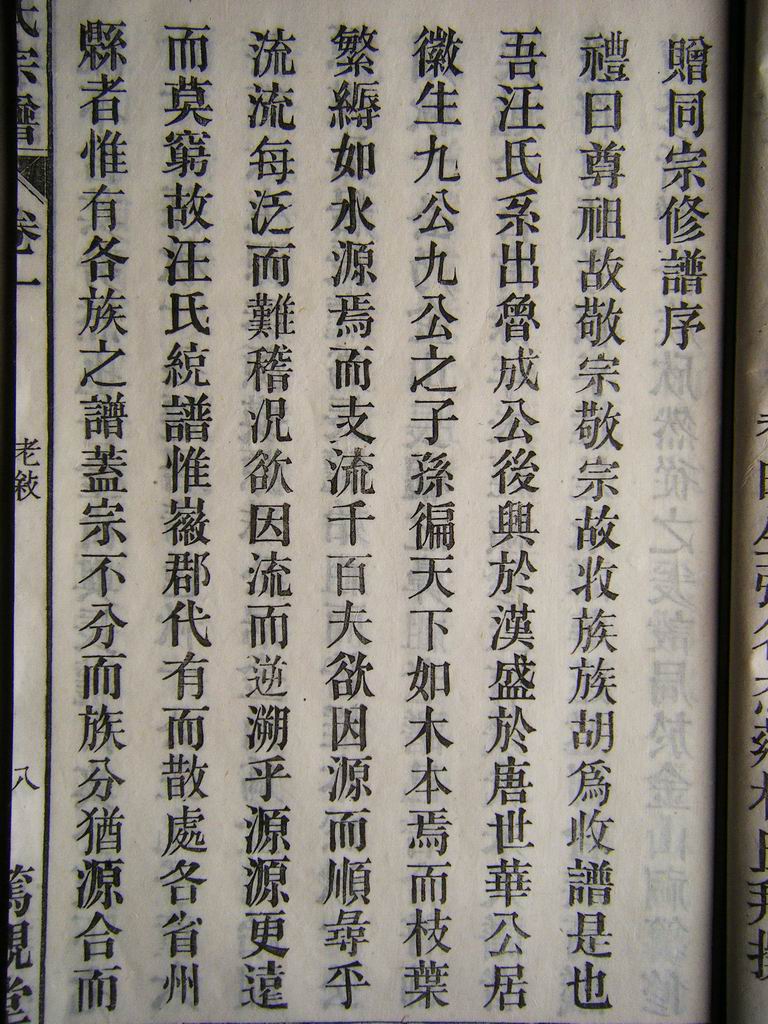 贈同宗修譜序
禮曰尊祖故敬宗敬宗故收族族胡爲收譜是也
吾汪氏系出魯成公後興於漢盛於唐世華公居
徽生九公九公之子孫徧天下如木本焉而枝葉
繁縟如水源焉而支流千百夫欲因源而順尋乎
流流每泛而難稽况欲因流而逆溯乎源源更遠
而莫窮故汪氏統譜惟徽郡代有而散處各省州
縣者惟有各族之譜蓋宗不分而族分猶源合而
氏宗譜 卷一 老敘 八 篤親堂